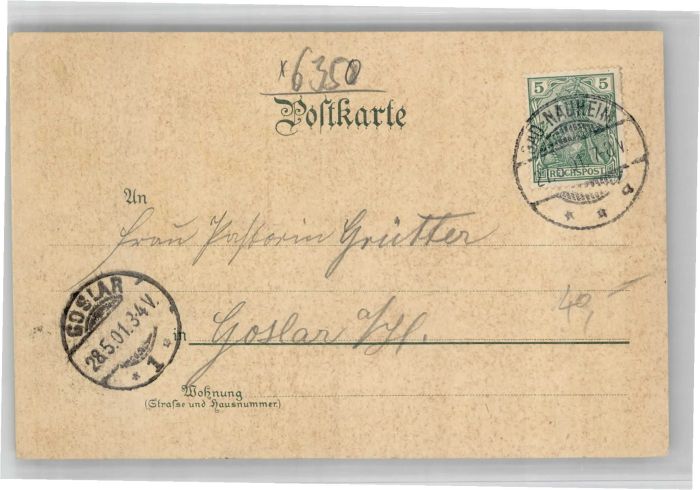 *6350
Postkarte
5 5
REICHSPOST
BAD-NAUHEIM
An
Frau Pastorin Grütter
GOSLAR
28.5.01.3-4V.
* 1
in Goslar a/H.
40,-
Wohnung
(Straße und Hausnummer)